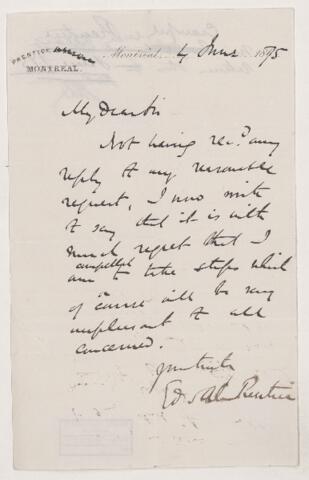 PRENTICE
MONTREAL.
Montréal, 4 June 1895
My Dear Sir
Not having rec.d any
reply to my reasonable
request, I now write
to say that it is with
much regret that I
compelled
am to take steps which
of course will be very
unpleasant to all
concerned.
Yours truly
Prentice